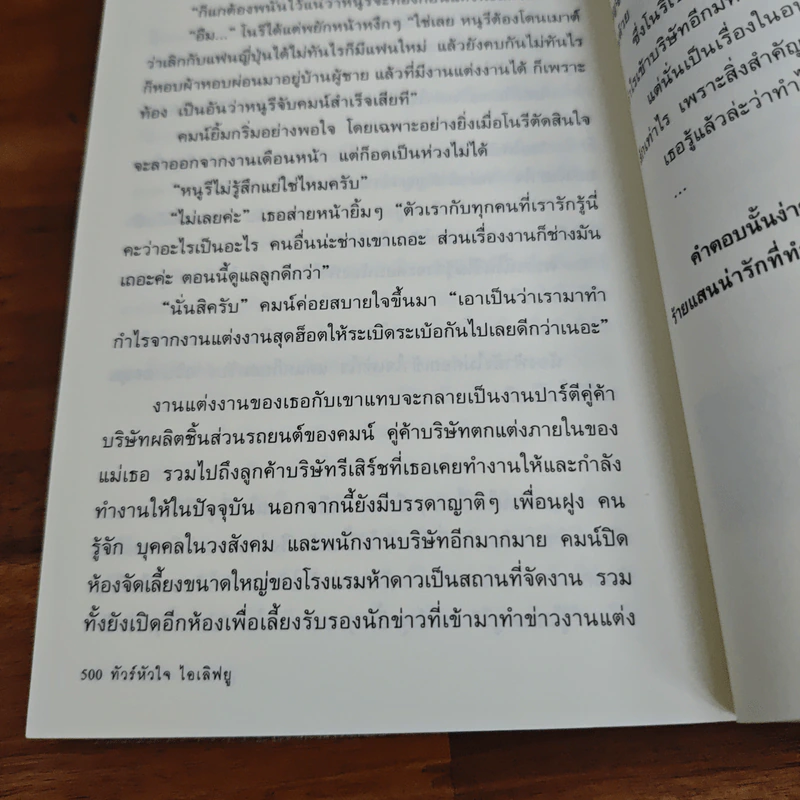 "ก็แกต้องพนันไว้แน่ว่าหนูรีจะท้องก่อน
"อืม..." โนรีได้แต่พยักหน้าหงึกๆ "ใช่เลย หนูรีต้องโดนเมาต์
ว่าเลิกกับแฟนญี่ปุ่นได้ไม่ทันไรก็มีแฟนใหม่ แล้วยังคบกันไม่ทันไร
ก็หอบผ้าหอบผ่อนมาอยู่บ้านผู้ชาย แล้วที่มีงานแต่งงานได้ ก็เพราะ
ท้อง เป็นอันว่าหนูรีจับคมน์สำเร็จเสียที"
คมน์ยิ้มกริ่มอย่างพอใจ โดยเฉพาะอย่างยิ่งเมื่อโนรีตัดสินใจ
จะลาออกจากงานเดือนหน้า แต่ก็อดเป็นห่วงไม่ได้
"หนูรีไม่รู้สึกแย่ใช่ไหมครับ"
"ไม่เลยค่ะ" เธอส่ายหน้ายิ้มๆ "ตัวเรากับทุกคนที่เรารักรู้นี่
คะว่าอะไรเป็นอะไร คนอื่นน่ะช่างเขาเถอะ ส่วนเรื่องงานก็ช่างมัน
เถอะค่ะ ตอนนี้ดูแลลูกดีกว่า"
"นั่นสิครับ" คมน์ค่อยสบายใจขึ้นมา "เอาเป็นว่าเรามาทำ
กำไรจากงานแต่งงานสุดฮ็อตให้ระเบิดระเบ้อกันไปเลยดีกว่าเนอะ"
งานแต่งงานของเธอกับเขาแทบจะกลายเป็นงานปาร์ตีคู่ค้า
บริษัทผลิตชิ้นส่วนรถยนต์ของคมน์ คู่ค้าบริษัทตกแต่งภายในของ
แม่เธอ รวมไปถึงลูกค้าบริษัทรีเสิร์ชที่เธอเคยทำงานให้และกำลัง
ทำงานให้ในปัจจุบัน นอกจากนี้ยังมีบรรดาญาติๆ เพื่อนฝูง คน
รู้จัก บุคคลในวงสังคม และพนักงานบริษัทอีกมากมาย คมน์ปิด
ห้องจัดเลี้ยงขนาดใหญ่ของโรงแรมห้าดาวเป็นสถานที่จัดงาน รวม
ทั้งยังเปิดอีกห้องเพื่อเลี้ยงรับรองนักข่าวที่เข้ามาทำข่าวงานแต่ง
500 ทัวร์หัวใจ ไอเลิฟยู
ซึ่งโนรี
เข้าบริษัทอีกม
แต่นั่นเป็นเรื่องในอน
เท่าไร เพราะสิ่งสำคัญ
เธอรู้แล้วล่ะว่าทำไ
...
คำตอบนั้นง่าย
ร้ายแสนน่ารักที่ทำ